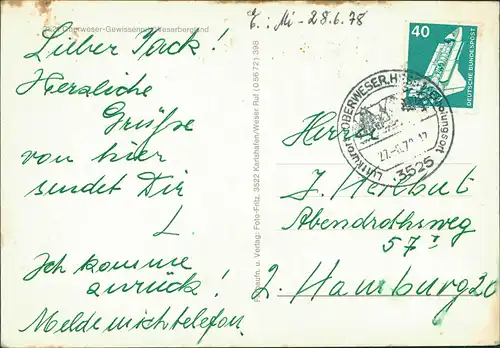 3525 Oberweser-Gewissenruh/Weserbergland
E.: Mi - 28.6.78
Lieber Jack!
Herzliche
Grüße
von hier
sendet Dir
L.
Ich komme
zurück!
Melde mich telefon.
Fotoaufn. u. Verlag: Foto-Fritz, 3522 Karlshafen/Weser Ruf (0 56 72) 398
40
DEUTSCHE BUNDESPOST
Luftkurort OBERWESER, Erholungsort
3525
Herrn
J. Herbut
Abendrothsweg
57 I
2. Hamburg 20